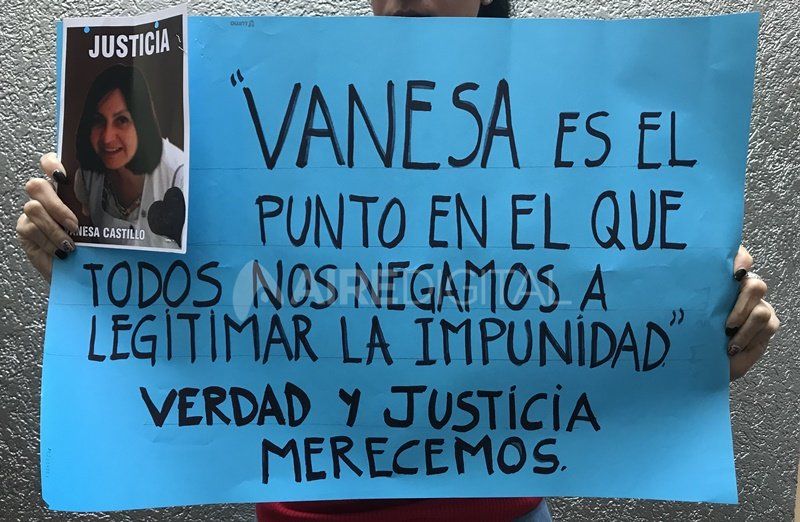 JUSTICIA
VANESA CASTILLO
Luma
"VANESA ES EL
PUNTO EN EL QUE
TODOS NOS NEGAMOS A
LEGITIMAR LA IMPUNIDAD."
VERDAD Y JUSTICIA
MERECEMOS.
AIREDIGITAL